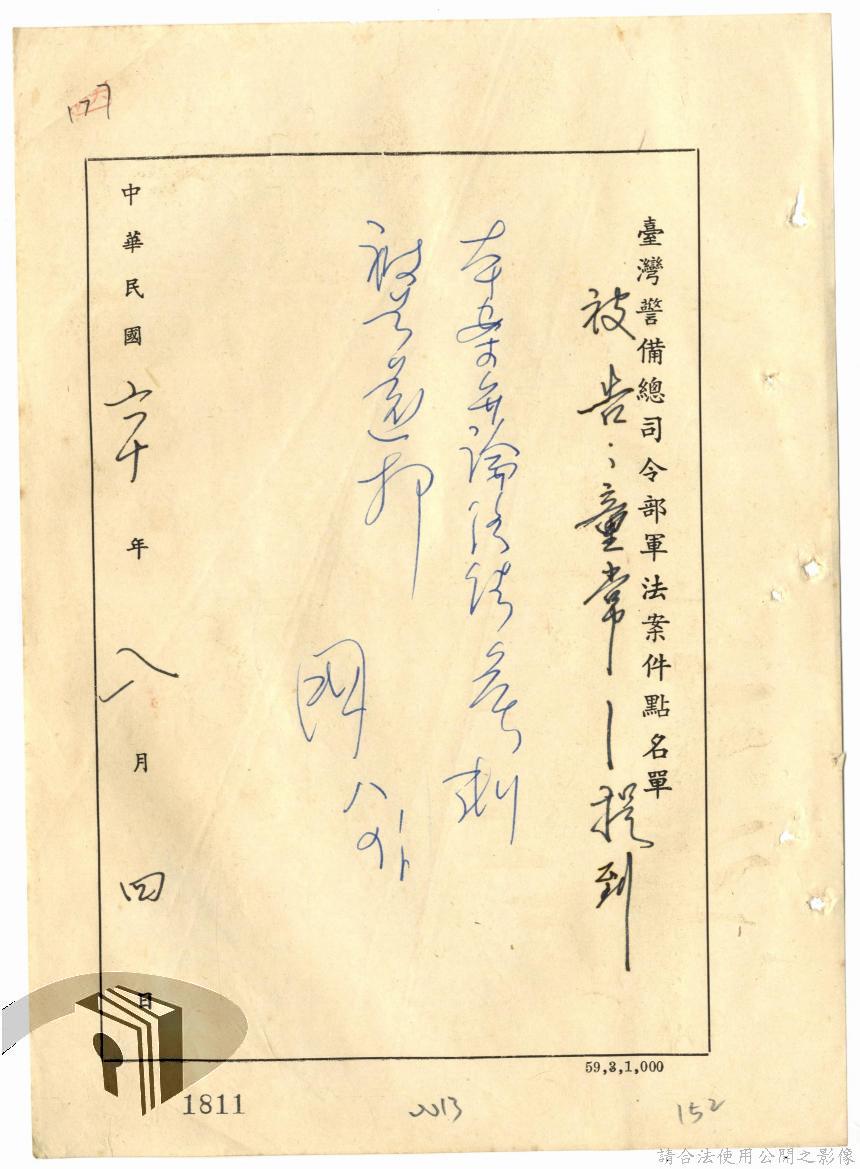 臺灣警備總司令部軍法案件點名單
被告:童常 提到
本案辯論終結 定 判
被告還押
八
中華民國六十年八月四日
59,3,1,000
1811
152
請合法使用公開之影像